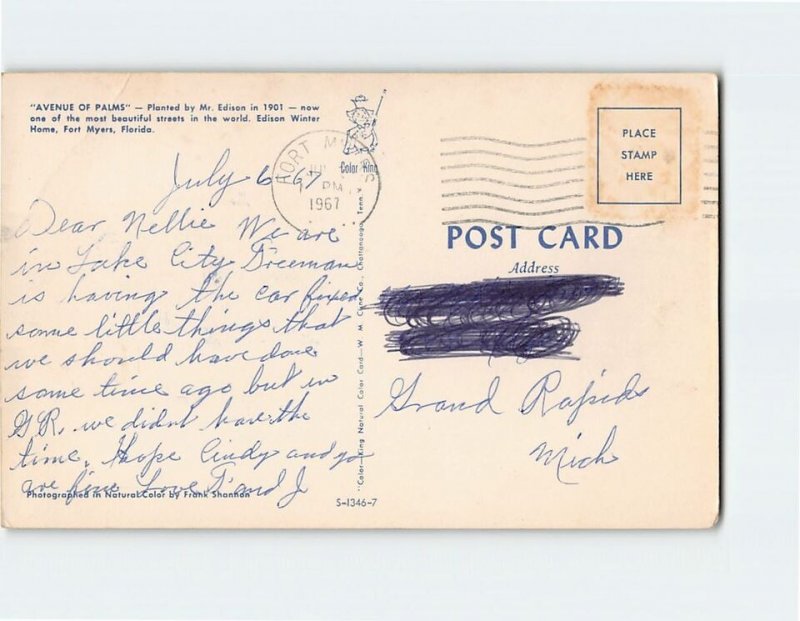 "AVENUE OF PALMS" — Planted by Mr. Edison in 1901 — now
one of the most beautiful streets in the world. Edison Winter
Home, Fort Myers, Florida.
Color King
FORT MYERS
PM
1967
PLACE
STAMP
HERE
July 6 - 67
Dear Nellie We are
in Lake City Freeman
is having the car fixed
some little things that
we should have done
some time ago but in
G R. we didn't have the
time. Hope Cindy and yo
are fine Love F and J
Photographed in Natural Color by Frank Shannon
"Color-King Natural Color Card—W. M. Cline Co., Chattanooga, Tenn."
S-1346-7
POST CARD
Address
Grand Rapids
Mich